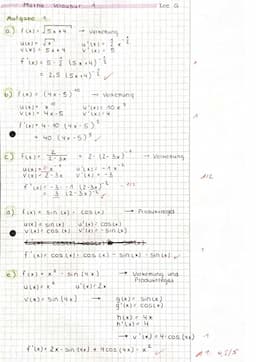 Mathe Klausur 1 Lee G
Aufgabe 1
a) f(x) = √5x+4 → Verkettung
u(x) = √x u'(x) = ½ x^-½
v(x) = 5x+4 v'(x) = 5
f'(x) = 5 · ½ (5x+4)^-½
= 2,5 (5x+4)^-½ ✓
b) f(x) = (4x-5)^10 → Verkettung
u(x) = x^10 u'(x) = 10x^9
v(x) = 4x-5 v'(x) = 4
f'(x) = 4 · 10 (4x-5)^9
= 40 (4x-5)^9
c) f(x) = 2/(2-3x) = 2 · (2-3x)^-1 → Verkettung
v(x) = 2-3x v'(x) = -3
1/2
d) f(x) = sin(x) · cos(x) → Produktregel
u(x) = sin(x) u'(x) = cos(x)
v(x) = cos(x) v'(x) = -sin(x)
f'(x) = cos(x) · cos(x) - sin(x) · sin(x)
e) f(x) = x² · sin(4x) → Verkettung und
Produktregel
u(x) = x² u'(x) = 2x
v(x) = sin(4x) → g(x) = sin(x)
g'(x) = cos(x)
h(x) = 4x
h'(x) = 4
→ v'(x) = 4·cos(4x)
f'(x) = 2x · sin(4x) + 4cos(4x) · x²